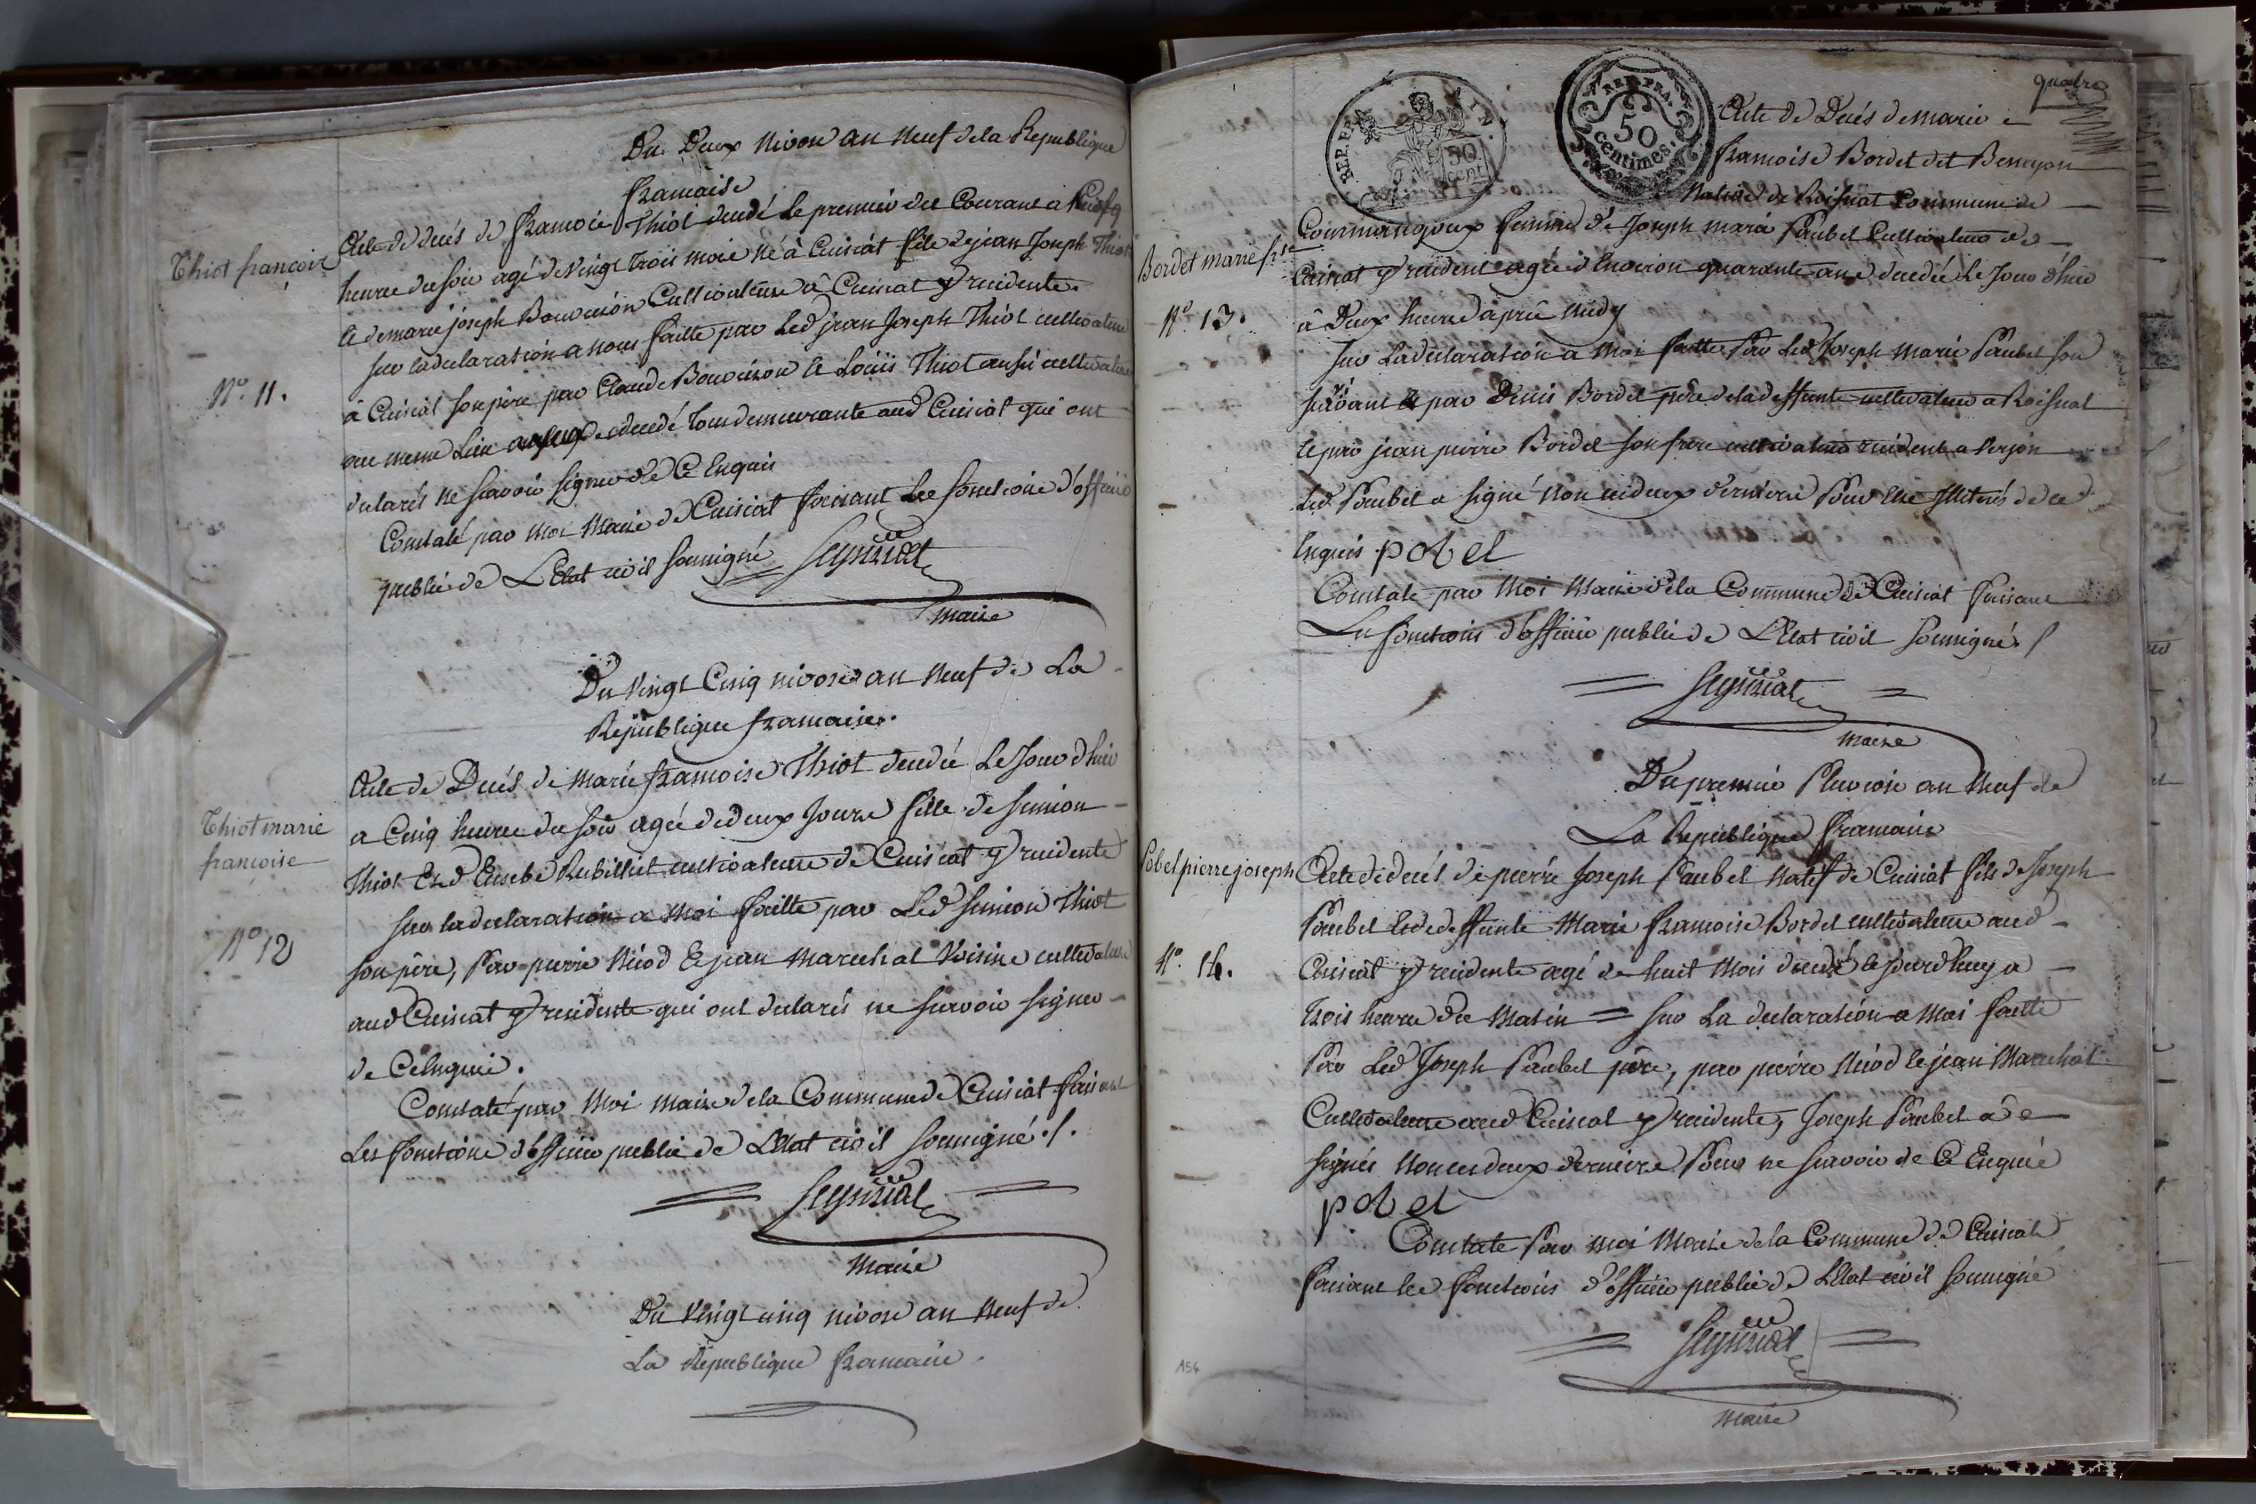 Du Deux Nivose an Neuf de la Republique
francaise
Thiot françois
Acte de decés de francois Thiot decedé le premier du Courant a
heures du soir agé de vingt trois mois né à Cuisiat fils de jean Joseph Thiot
et de marie joseph Bouvoiron Cultivateurs à Cuisiat y residents.
sur la declaration a nous faitte par led jean Joseph Thiot cultivateur
N° 11.
à Cuisiat son père par Claude Bouvoiron et Loüis Thiot aussi cultivateurs
au meme Lieu decedé tous demeurants aud Cuisiat qui ont
declarés ne scavoir signer de Ce Enquis
Constaté par moi Maire de Cuisiat faisant les fonctions d'officier
publice de L'Etat civil soussigné
maire
Du Vingt Cinq nivose an Neuf de La
République francaise.
Acte de Decés de Marie francoise Thiot decedée Le Jour d'huis
a Cinq heures du soir agée de deux Jours fille de Simion
Thiot marie
françoise
Thiot Et d' Eusebe Rubilliet cultivateurs de Cuisiat y residents
sur la declaration a Moi faitte par Led Simion Thiot
N° 12
son père, Par pierre Niod Et jean Marechal Voisins cultivateurs
aud Cuisiat y residents qui ont declarés ne scavoir signer
de Ce Enquis.
Constaté par Moi maire de la Commune de Cuisiat faisant
Les fonctions d'officier publice de L'Etat civil soussigné ./.
Maire
Du Vingt cinq nivose an Neuf de
La République francaise.
quatre
REP. FRA.
50
cent
REP. FRA.
50
centimes.
Acte de Decés de marie
francoise Bordet dit Bemeyon
Native de Roisiat Commune de
Courmangoux femme de Joseph marie Paubel Cultivateur de
Bordet marie fse
Cuisiat y resident agée d'Environ quarante ans decedée Le Jour d'huis
N° 13.
à Deux heures après Midy
sur La declaration a Moi faitte Par Led Joseph marie Paubel son
survivant par Denis Bordet père de la deffunte cultivateur a Roisiat
et par jean pierre Bordet son frère cultivateur resident a Verjon
Led Paubel a signé Non ces deux derniers Pour Etre Illiterés de ce
Enquis. pobel
Constate par Moi Maire de la Commune de Cuisiat faisant
Les fonctions d'officier publice de L'Etat civil soussigné ./
maire
Du premier Pluviose an Neuf de
La République francaise
Pobel pierre joseph
Acte de decés de pierre Joseph Paubel Natif de Cuisiat fils de Joseph
Paubel et de deffunte Marie francoise Bordet cultivateurs aud
N° 14.
Cuisiat y residents agé de huit Mois decedé le jourd'huy a
trois heures du Matin = sur La declaration a Moi faitte
Par Led Joseph Paubel père, par pierre Niod et jean Marechal
Cultivateurs aud Cuisiat y residents, Joseph Paubel a
signés Non ces deux derniers Pour ne scavoir de Ce Enquis
pobel
Constate Par moi Maire de la Commune de Cuisiat
faisant les fonctions d'officier publice de L'Etat civil soussigné
maire
154